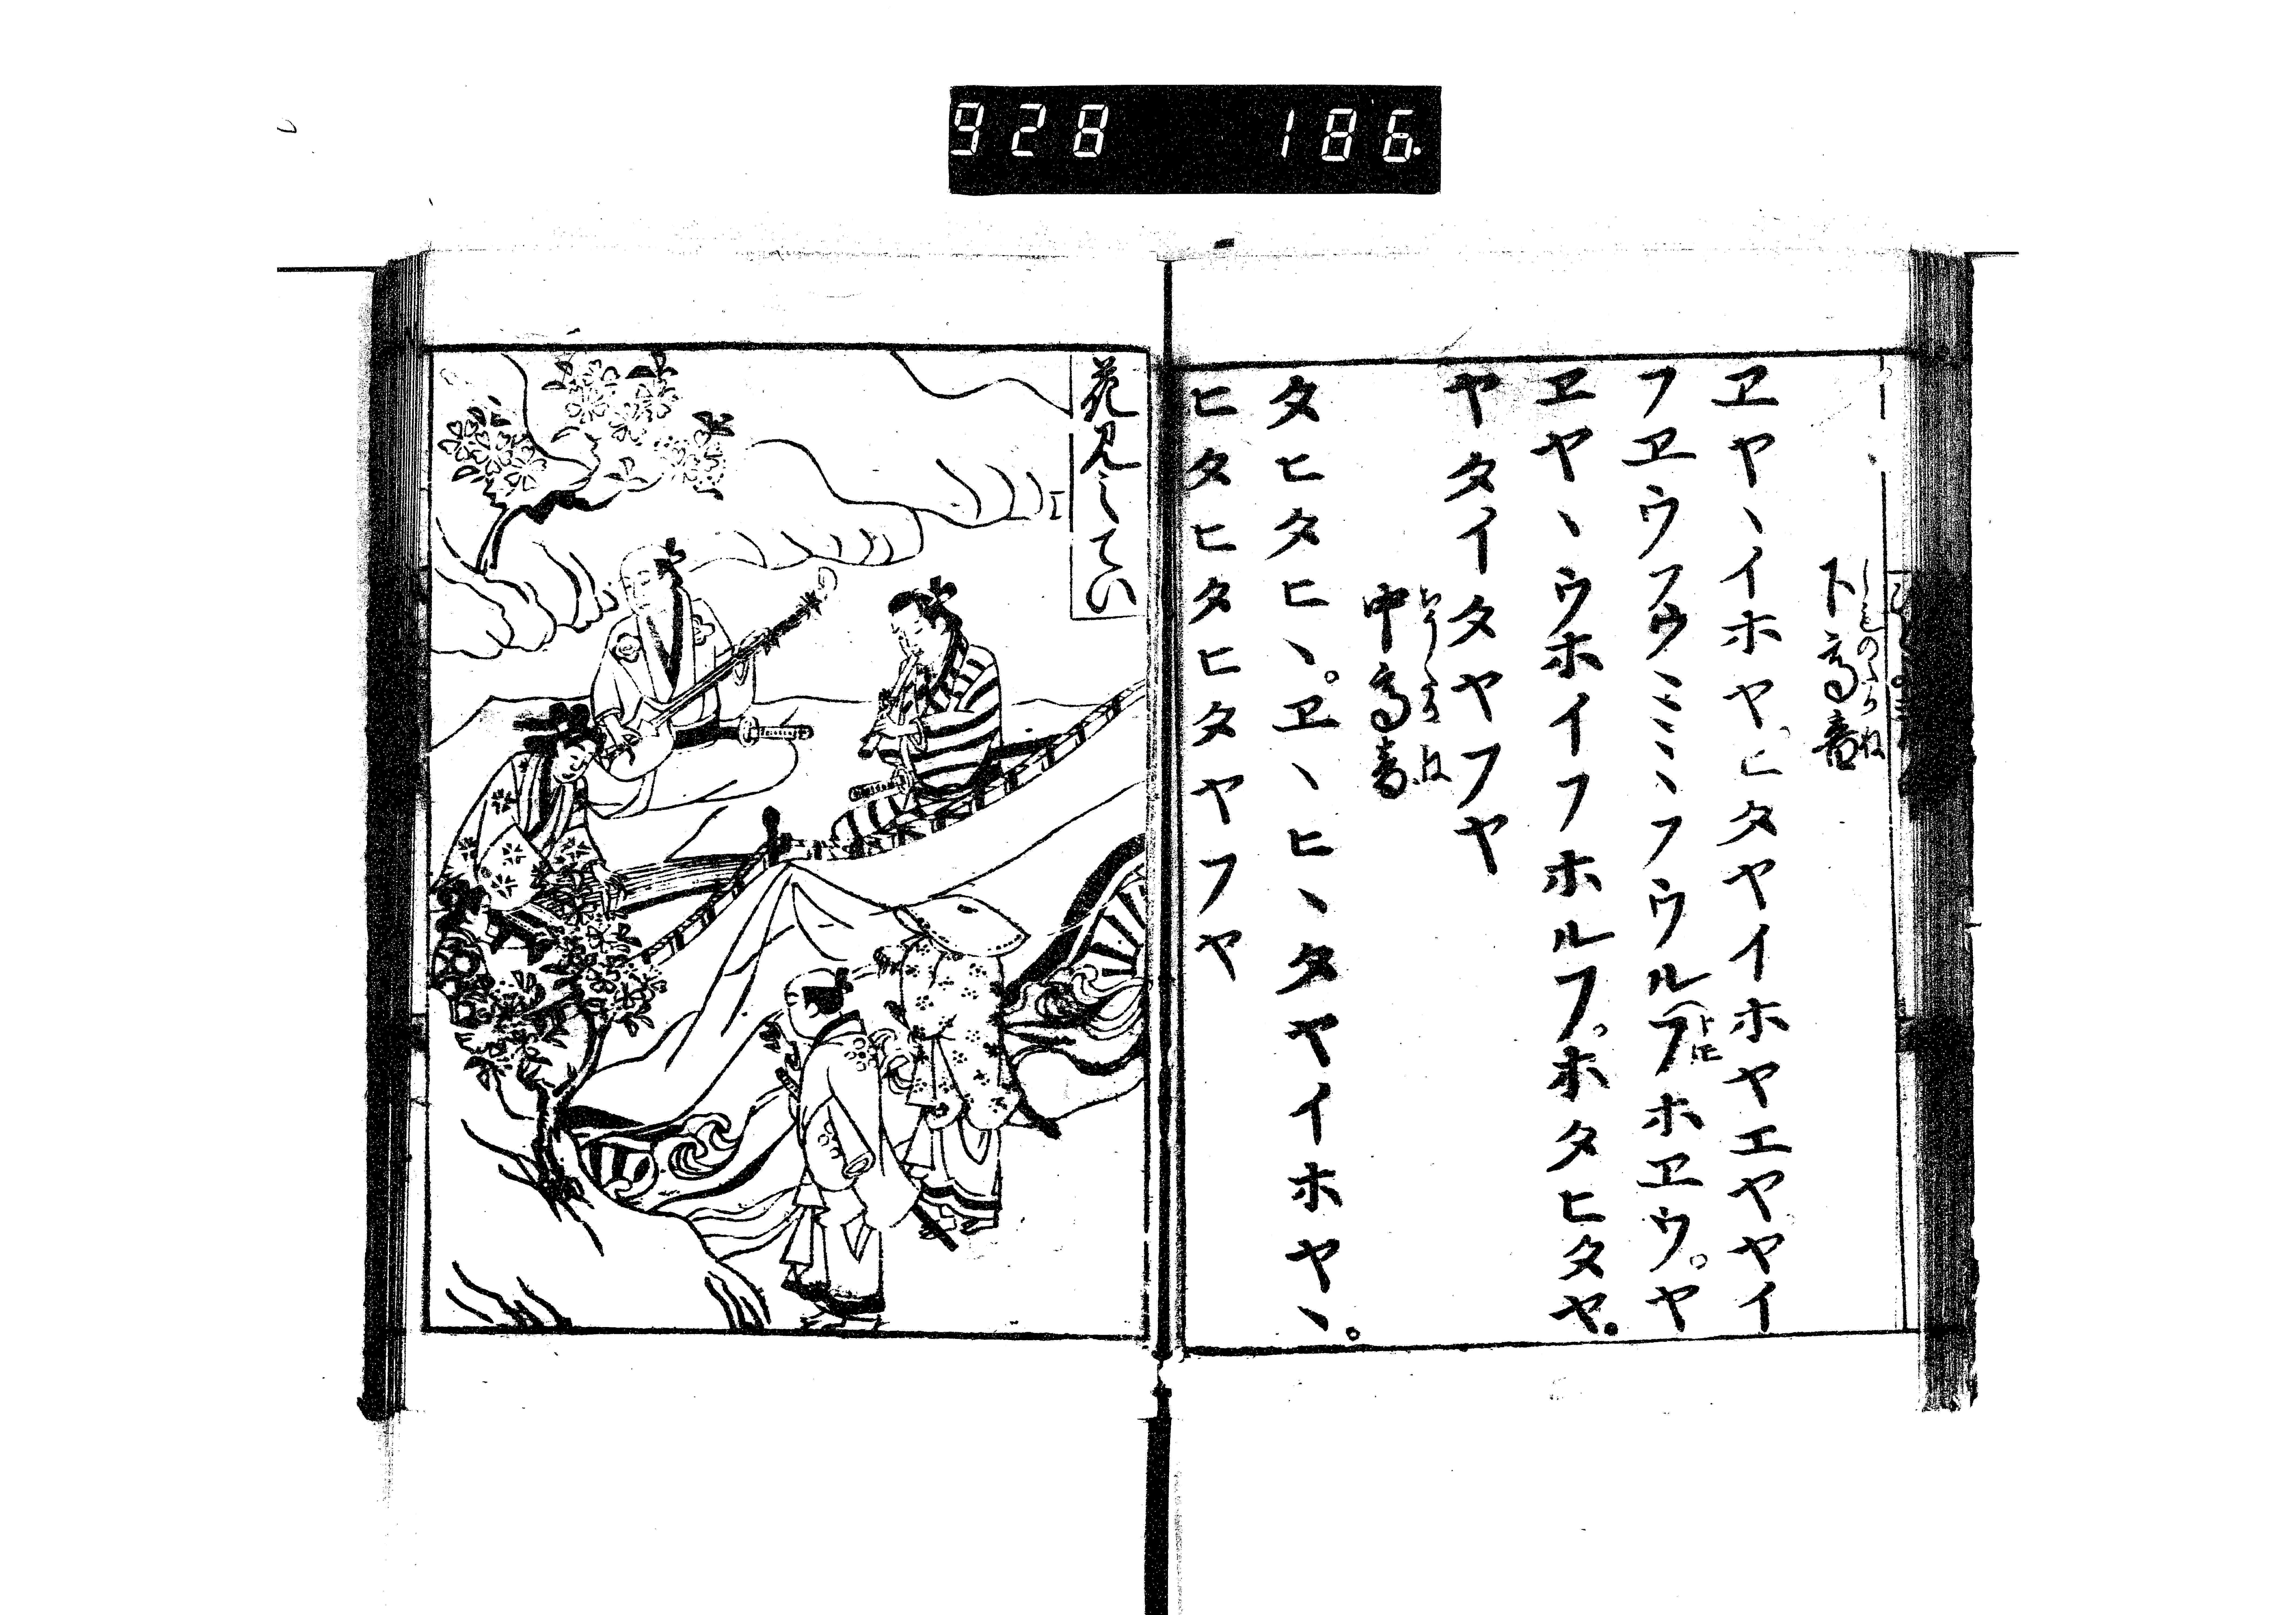 928 186.
下高音
ヱヤヽイホヤ。ヒタヤイホヤエヤヤイ
フヱウフウミミミヽフウルフホヱウ。ヤ
ヱヤヽウホイフホルフ。ホタヒタヤ。
ヤタイタヤフヤ
中高音
タヒタヒヽ。ヱヽヒヽタヤイホヤヽ。
ヒタヒタヒタヤフヤ
花見のてい